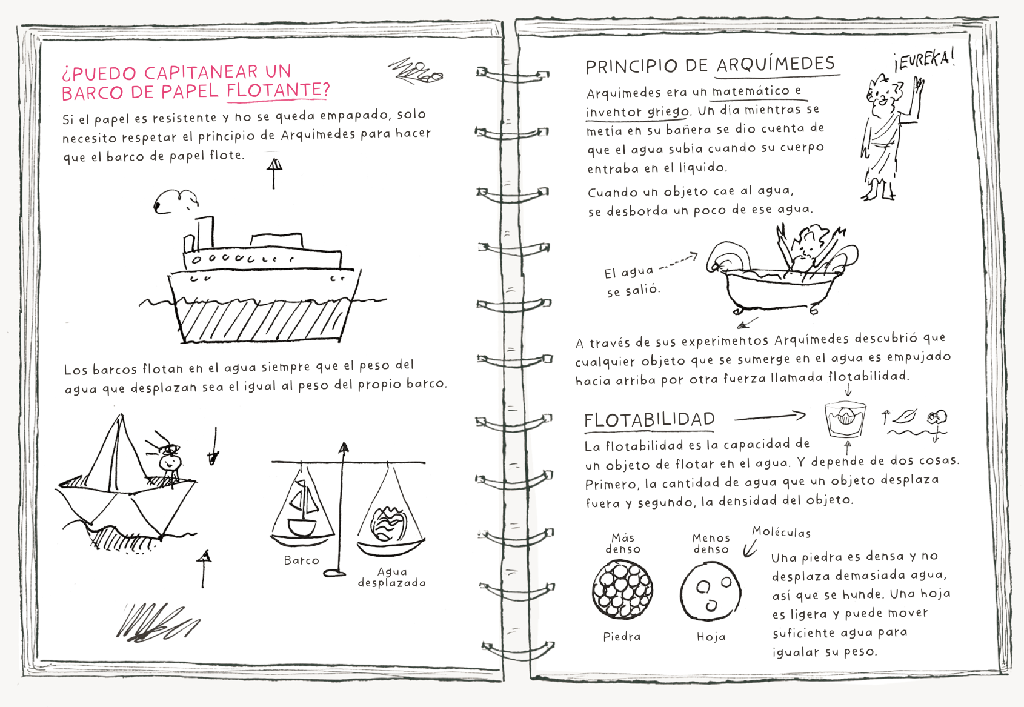 ¿PUEDO CAPITANEAR UN
BARCO DE PAPEL FLOTANTE?
Si el papel es resistente y no se queda empapado, solo
necesito respetar el principio de Arquímedes para hacer
que el barco de papel flote.
Los barcos flotan en el agua siempre que el peso del
agua que desplazan sea el igual al peso del propio barco.
Barco
Agua
desplazada
PRINCIPIO DE ARQUÍMEDES
¡EUREKA!
Arquímedes era un matemático e
inventor griego. Un día mientras se
metía en su bañera se dio cuenta de
que el agua subía cuando su cuerpo
entraba en el líquido.
Cuando un objeto cae al agua,
se desborda un poco de ese agua.
El agua
se salió.
A través de sus experimentos Arquímedes descubrió que
cualquier objeto que se sumerge en el agua es empujado
hacia arriba por otra fuerza llamada flotabilidad.
FLOTABILIDAD
La flotabilidad es la capacidad de
un objeto de flotar en el agua. Y depende de dos cosas.
Primero, la cantidad de agua que un objeto desplaza
fuera y segundo, la densidad del objeto.
Más
denso
Menos
denso
Moléculas
Piedra
Hoja
Una piedra es densa y no
desplaza demasiada agua,
así que se hunde. Una hoja
es ligera y puede mover
suficiente agua para
igualar su peso.